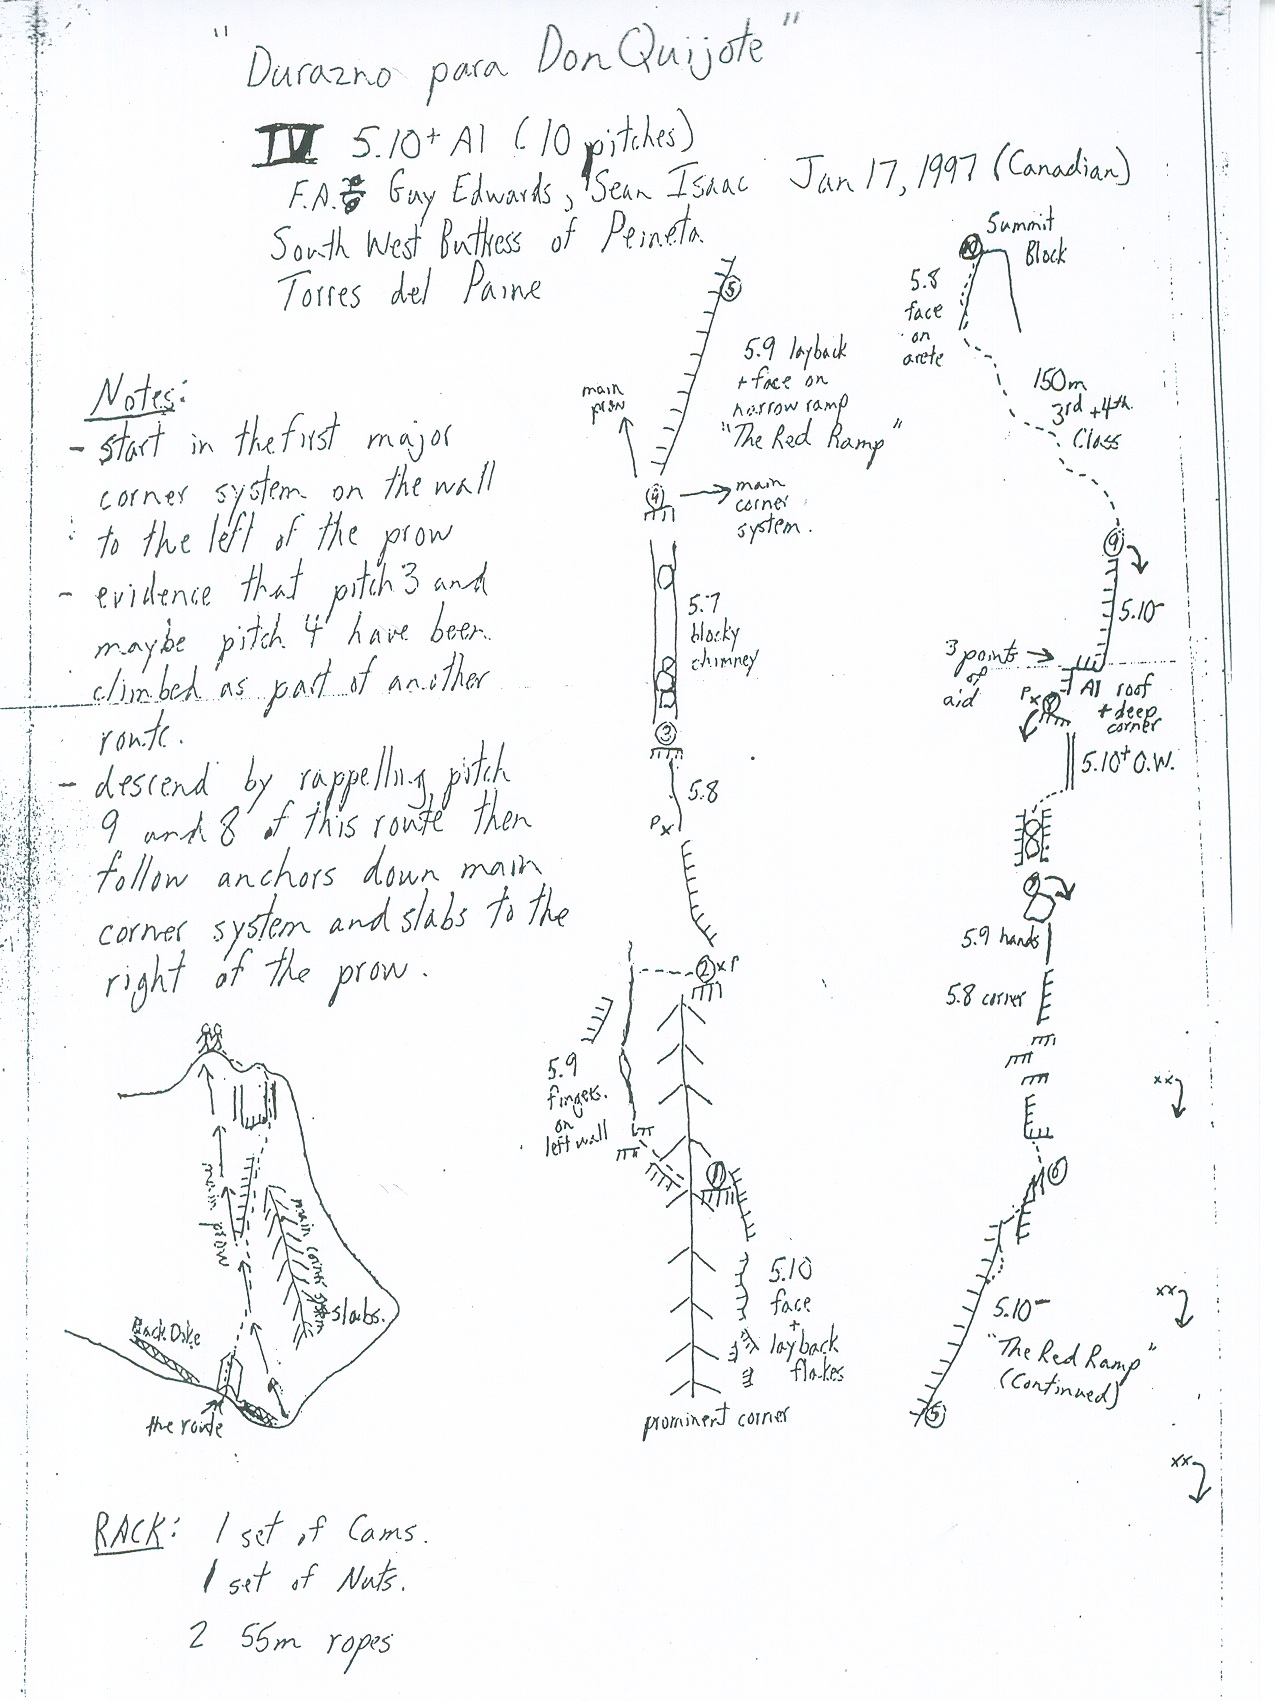 "Durazno para Don Quijote"
IV 5.10+ A1 (10 pitches)
F.A. Guy Edwards, Sean Isaac Jan 17, 1997 (Canadian)
South West Buttress of Peineta
Torres del Paine
Notes:
- start in the first major
corner system on the wall
to the left of the prow
- evidence that pitch 3 and
maybe pitch 4 have been
climbed as part of another
route.
- descend by rappelling pitch
9 and 8 of this route then
follow anchors down main
corner system and slabs to the
right of the prow.
main prow
main corner system
slabs.
Back Dike
the route
RACK: 1 set of Cams.
1 set of Nuts.
2 55m ropes
5
5.9 layback
+ face on
narrow ramp
"The Red Ramp"
main
prow
4
main
corner
system.
5.7
blocky
chimney
3
5.8
Px
2 xP
5.9
fingers
on
left wall
1
5.10
face
+
layback
flakes
prominent corner
10
Summit
Block
5.8
face
on
arete
150m
3rd + 4th
Class
9
5.10-
3 points
of
aid
A1 roof
+ deep
corner
Px
8
5.10+ O.W.
7
5.9 hands
5.8 corner
xx
6
xx
5.10-
"The Red Ramp"
(Continued)
5
xx